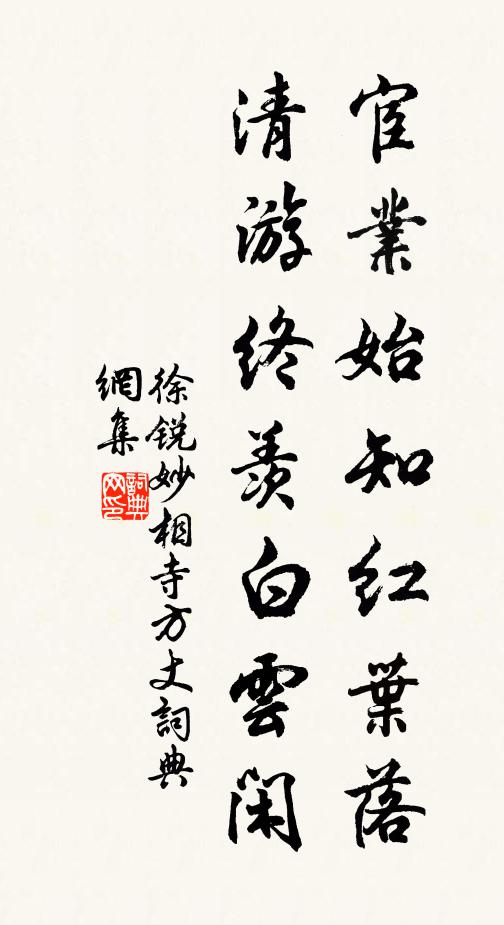 宦業始知紅葉落
清游終羨白雲閑
徐锐妙相寺方丈詞典
網集
詞典
网印